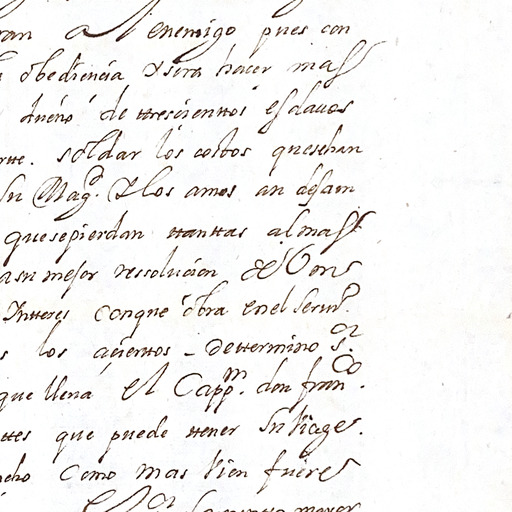 ran al enemigo pues con
obediencia y sera hacer mas
dueño de ttrescienttos esclavos
rtte. soldar los costos quesehan
su Magd. y los amos an desam
quesepierdan ttanttas almas
asu mejor resolucion de Vons
Yntteres conque obra enel servi.
s los açiertos - Dettermino
que lleva el Cappm. don Franco.
ttes que puede ttener su viage.
cho como mas bien fuere
mayor